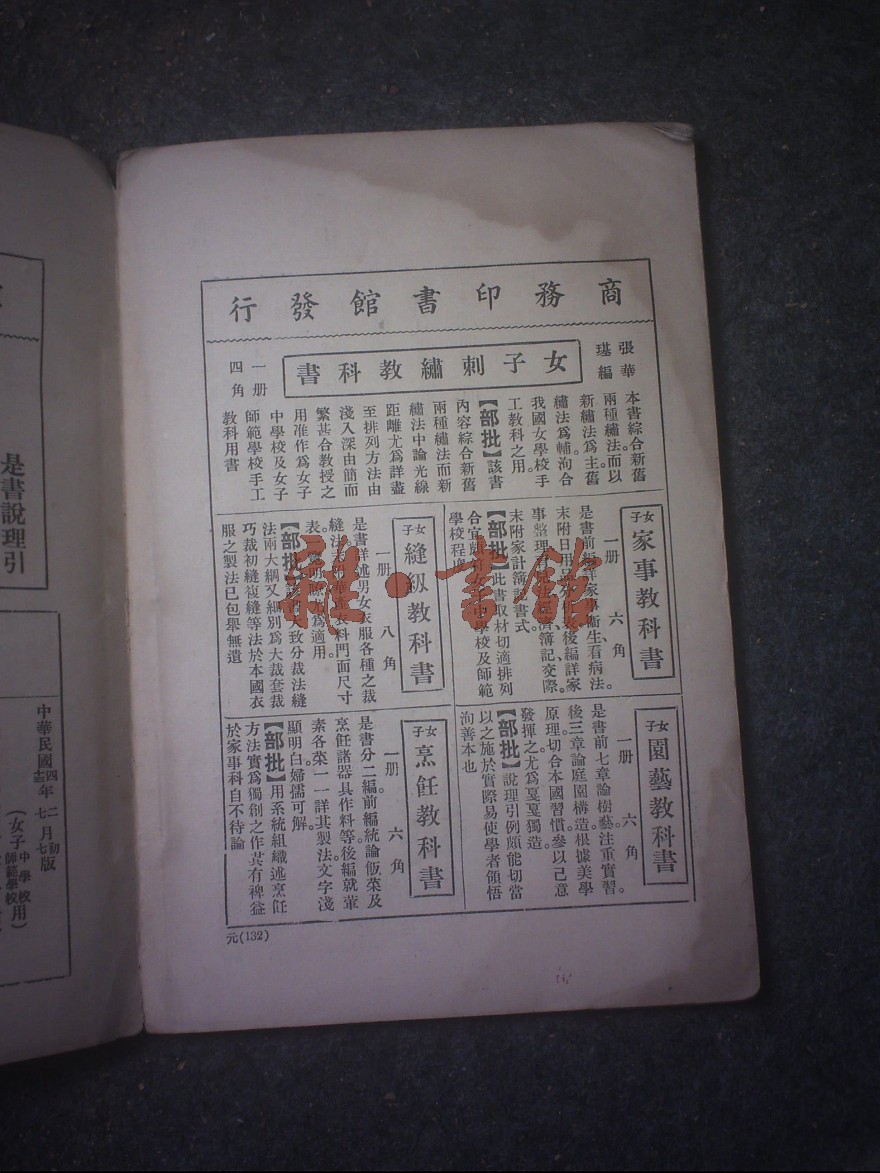 商務印書館發行
張華璂編
女子刺繡教科書
一册
四角
本書綜合新舊
兩種繡法而以
新繡法爲主舊
繡法爲輔洵合
我國女學校手
工教科之用。
【部批】該書
內容綜合新舊
兩種繡法而新
繡法中論光線
距離尤爲詳盡
至排列方法由
淺入深由簡而
繁甚合教授之
用准作爲女子
中學校及女子
師範學校手工
教科用書
女子
家事教科書
一册 六角
是書前編詳家事衞生、看病法。
末附日用品
後編詳家
事整理
簿記、交際。
末附家計簿記書式。
【部批】此書取材切適排列
合宜
女子中學校及師範
學校程度
女子
縫紉教科書
一册 八角
是書詳述男女衣服各種之裁
縫法
衣料門面尺寸
表。
尤爲適用。
【部批】該書大致分裁法縫
法兩大綱又細別爲大裁套裁
巧裁初縫複縫等法於本國衣
服之製法已包舉無遺
女子
園藝教科書
一册 六角
是書前七章論樹藝注重實習。
後三章論庭園構造根據美學
原理切合本國習慣參以己意
發揮之尤爲戛戛獨造。
【部批】說理引例頗能切當
以之施於實際易使學者領悟
洵善本也
女子
烹飪教科書
一册 六角
是書分二編前編統論飯菜及
烹飪諸器具作料等。後編就葷
素各菜一一詳其製法文字淺
顯明白婦孺可解。
【部批】用系統組織述烹飪
方法實爲獨創之作其有裨益
於家事科自不待論
元(132)
是書說理引
中華民國
年
月
版
(女子中學校師範學校用)
雜·書館